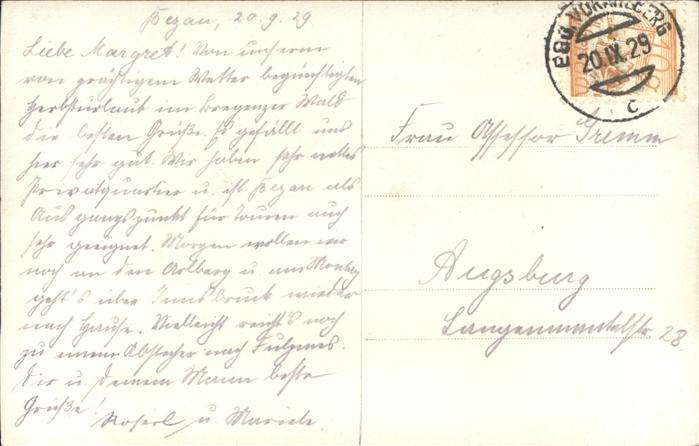 Bezau, 20.9.29
Liebe Margret! Von unserm
von prächtigem Wetter begünstigten
Herbsturlaub im Bregenzer Wald
die besten Grüße. Es gefällt uns
hier sehr gut. Wir haben sehr nettes
Privatquartier u. ist Bezau als
Ausgangspunkt für Touren auch
sehr geeignet. Morgen wollen wir
noch an den Arlberg u. am Montag
geht's über Innsbruck wieder
nach Hause. Vielleicht reicht's noch
zu einem Abstecher nach Fulpmes.
Dir u. Deinem Mann beste
Grüße!
Roserl u. Mariele.
EGG VORARLBERG
20.IX.29
C
Frau Assessor Gremm
Augsburg
Langenmantelstr. 28